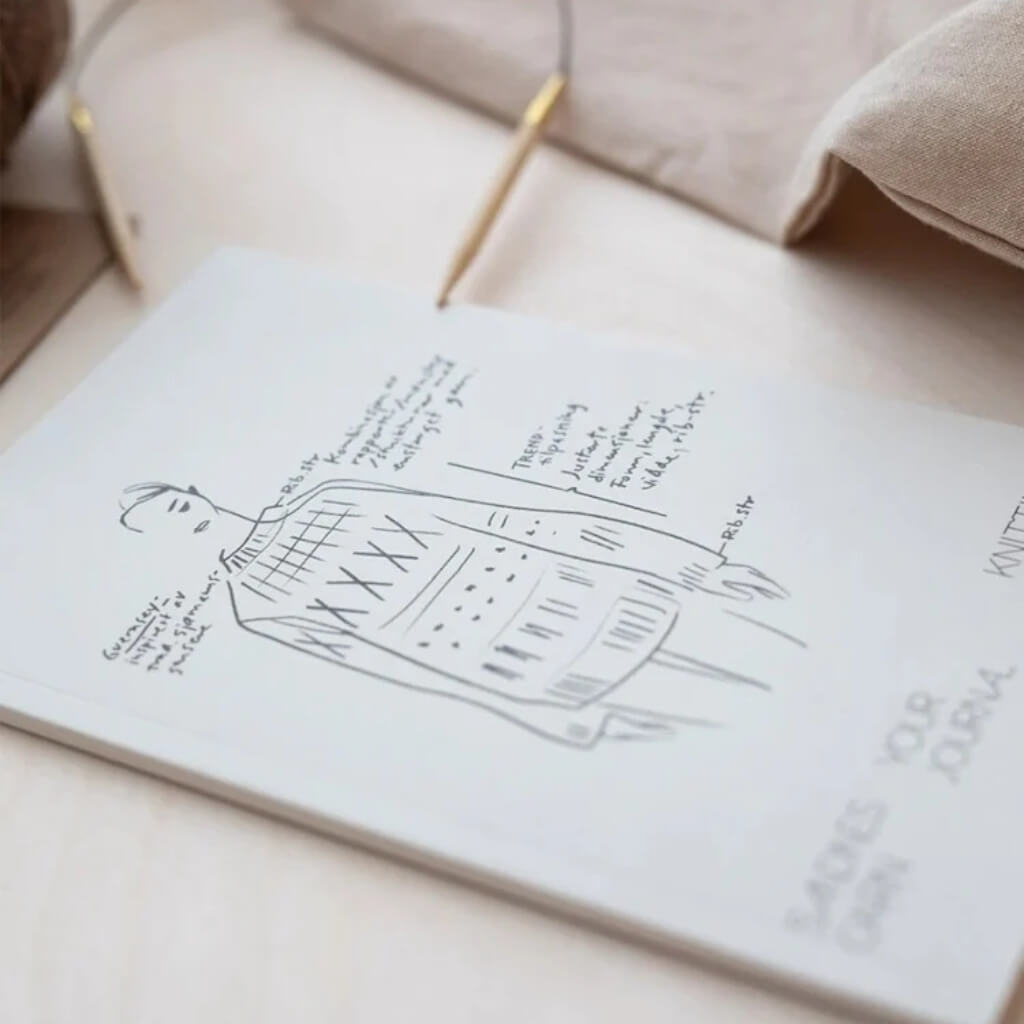 Rib.str
Kombinasjon av
rapporter/mønster
/strukturer med
ensfarget garn.
TREND-
tilpasning
Justerte
dimensjoner:
Form, lengde,
vidde, rib-str.
Rib.str
Guernsey-
inspirert av
trad. sjømanns-
gensere
KNITTI
YOUR
JOURNAL
GARN